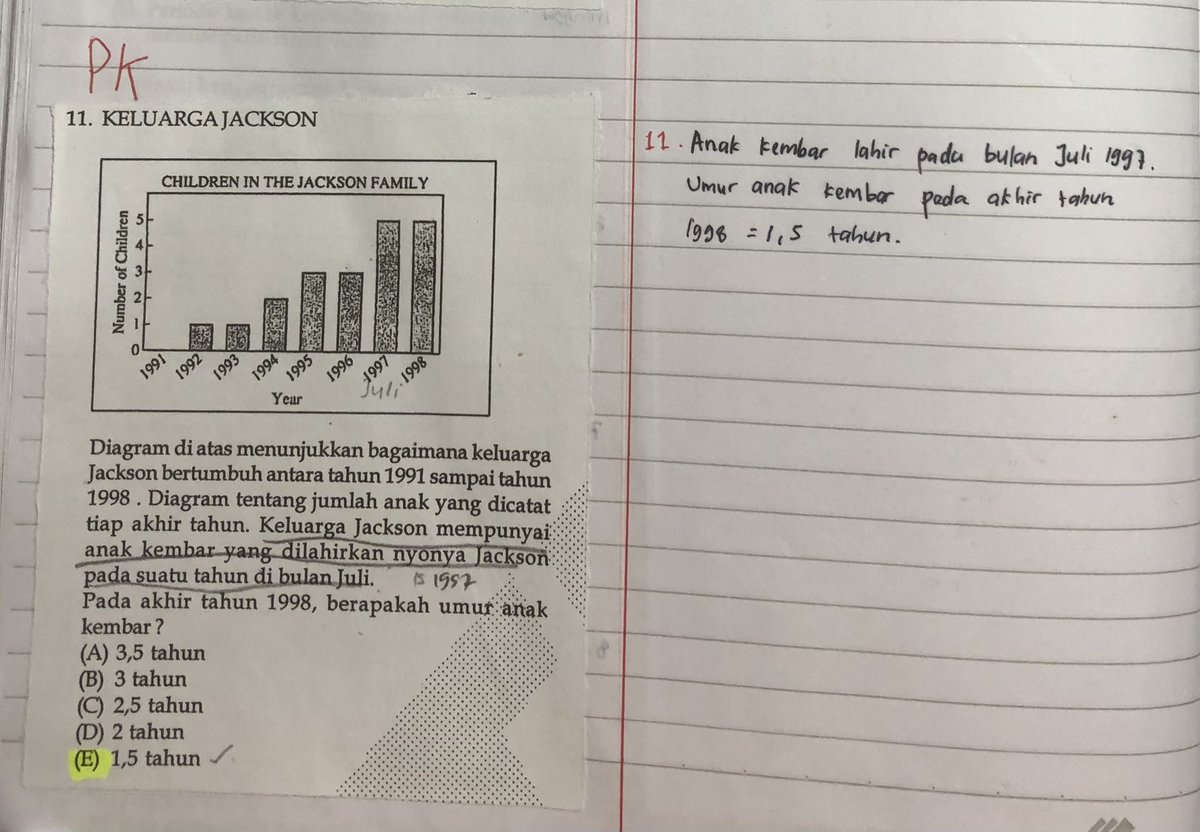 PK
11. KELUARGA JACKSON
CHILDREN IN THE JACKSON FAMILY
Number of Children
5
4
3
2
1
0
1991 1992 1993 1994 1995 1996 1997 1998
Juli
Year
Diagram di atas menunjukkan bagaimana keluarga
Jackson bertumbuh antara tahun 1991 sampai tahun
1998 . Diagram tentang jumlah anak yang dicatat
tiap akhir tahun. Keluarga Jackson mempunyai
anak kembar yang dilahirkan nyonya Jackson
pada suatu tahun di bulan Juli.
Pada akhir tahun 1998, berapakah umur anak
kembar ?
(A) 3,5 tahun
(B) 3 tahun
(C) 2,5 tahun
(D) 2 tahun
(E) 1,5 tahun
11. Anak kembar lahir pada bulan Juli 1997.
Umur anak kembar pada akhir tahun
1998 = 1,5 tahun.